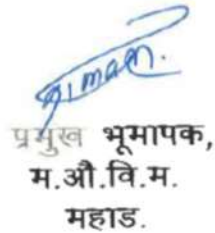 प्रमुख भूमापक,
म.औ.वि.म.
महाड.